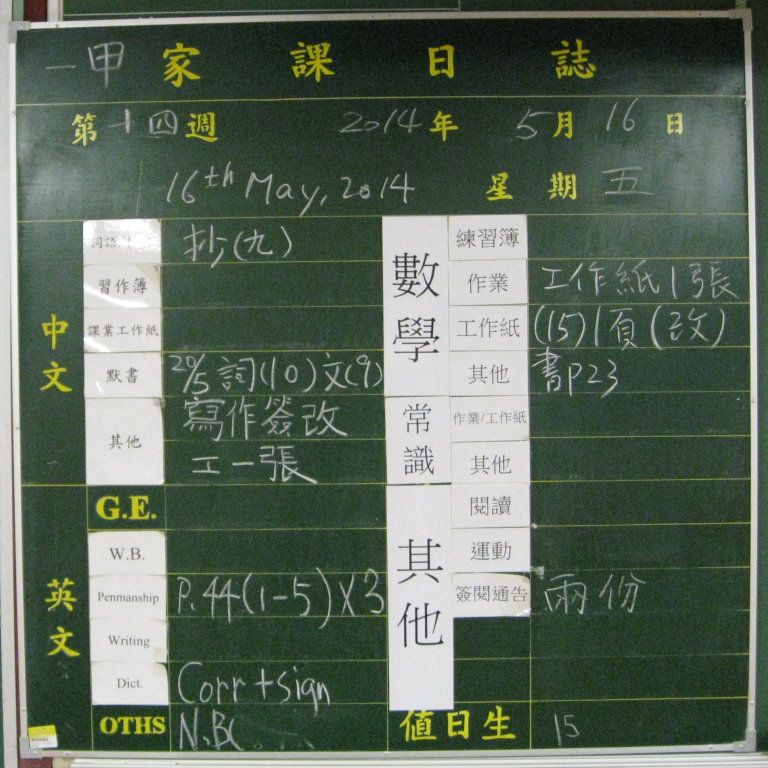 一甲 家課日誌
第十四週 2014年 5月16日
16th May, 2014 星期五
中文
詞語
抄(九)
習作簿
課業工作紙
默書 20/5 詞(10)文(9)
其他 寫作簽改
工一張
英文
G.E.
W.B.
Penmanship P.44(1-5)×3
Writing
Dict. Corr+sign
OTHS N.B(
數學
練習簿
作業 工作紙1張
工作紙 (15)1頁(改)
其他 書P23
常識
作業/工作紙
其他
其他
閱讀
運動
簽閱通告 兩份
值日生 15